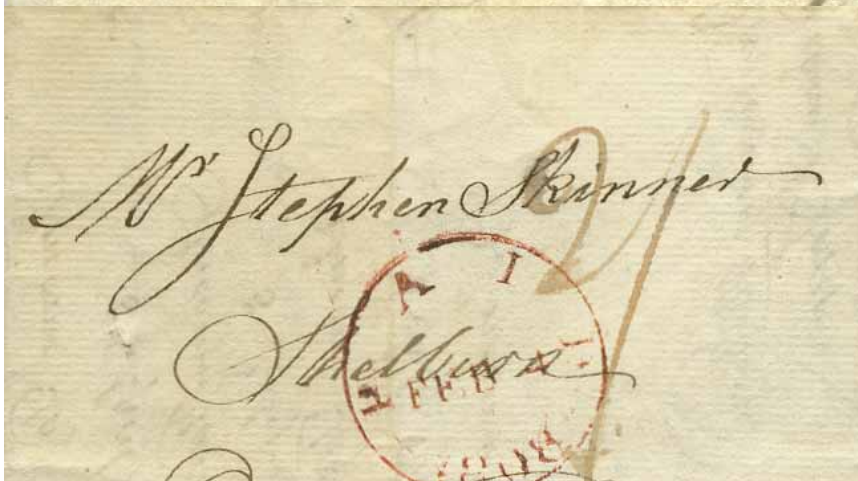 Mr Stephen Skinner
Shelburn
FEB